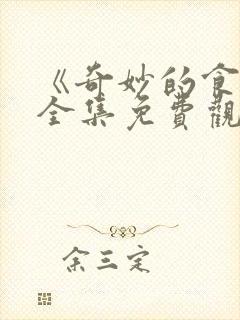 《奇妙的食
全集免費觀
余三定